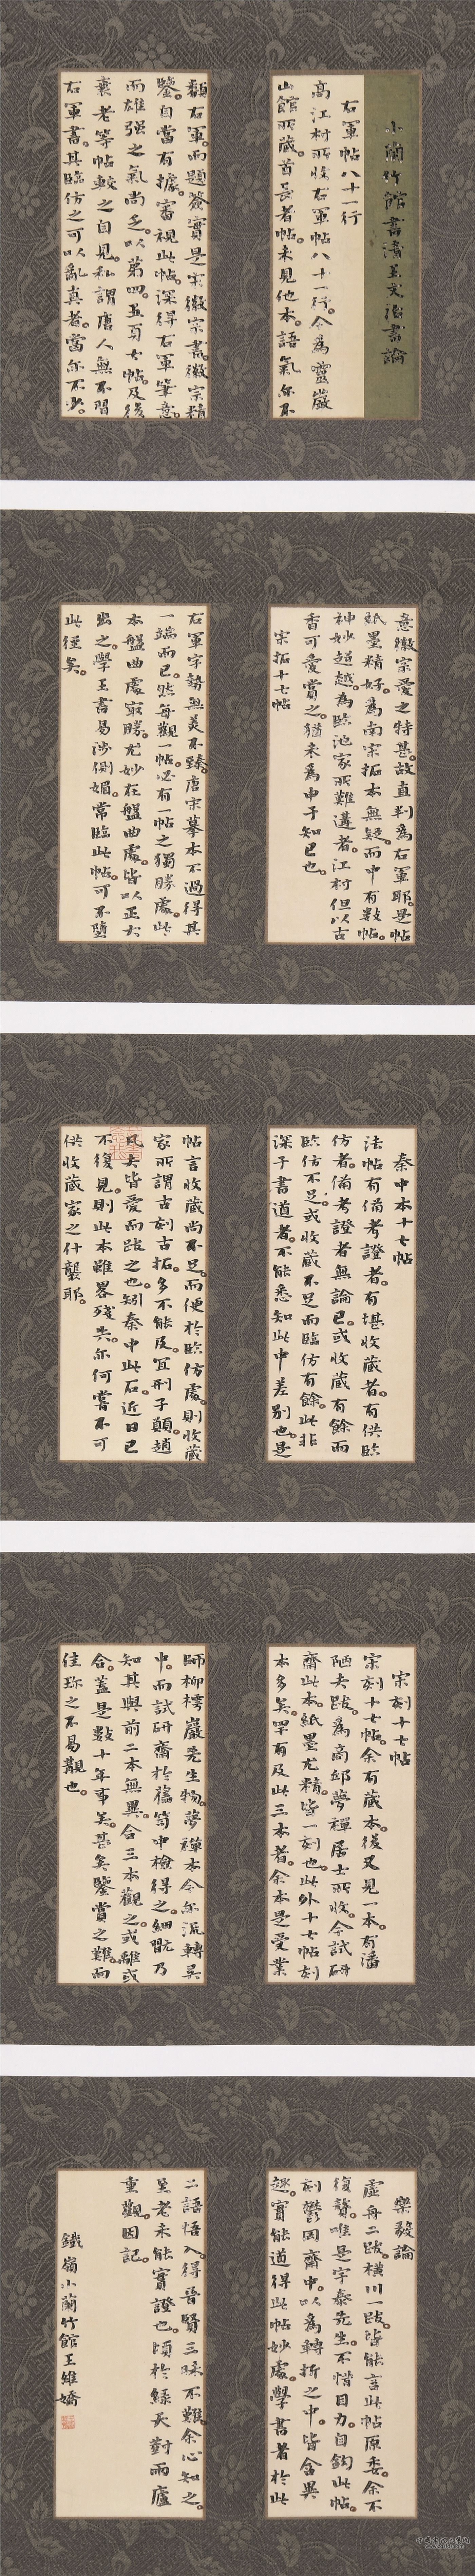 小蘭竹館書清王文治書論
右軍帖八十一行
高江村所收右軍帖八十一行今為靈巖
山館所藏首長者帖未見他本語氣亦不
類右軍而題簽實是宋徽宗書徽宗精
鑒自當有據審視此帖深得右軍筆意
而雄强之氣尚乏以第四五頁七帖及後
衰老等帖較之自見私謂唐人無不習
右軍書其臨仿之可以亂真者當亦不少
意徽宗愛之特甚故直判為右軍耶是帖
紙墨精好為南宋拓本無疑而中有數帖
神妙超越為臨池家所難遘者江村但以古
香可愛賞之猶未為申子知己也
宋拓十七帖
右軍字勢無美不臻唐宋摹本不過得其
一端而已然每觀一帖必有一帖之獨勝處此
本盤曲處寂勝尤妙在盤曲處皆以正大
出之學王書易涉側媚常臨此帖可不墮
此徑矣
秦中本十七帖
法帖有備考證者有堪收藏者有供臨
仿者備考證者無論已或收藏有餘而
臨仿不足或收藏不足而臨仿有餘此非
深于書道者不能悉知此中差別也是
帖言收藏尚不足而便於臨仿處則收藏
家所謂古刻古拓多不能及宜刑子顛趙
凡夫皆愛而跋之也矧秦中此石近日已
不復見則此本雖畧殘失亦何嘗不可
供收藏家之什襲耶
宋刻十七帖
宋刻十七帖余有藏本後又見一本有潘
陋夫跋為商邱夢禪居士所收今試研
齋此本紙墨尤精皆一刻也此外十七帖刻
本多矣罕有及此三本者余本是受業
師柳樗巖先生物夢禪本今亦流轉吴
中而試研齋於舊笥中檢得之細翫乃
知其與前二本無異合三本觀之或離或
合蓋是數十年事矣甚矣鑒賞之難而
佳珎之不易覯也
樂毅論
虛舟二跋横川一跋皆能言此帖原委余不
復贅唯是宇泰先生不惜目力自鈎此帖
刻鬱岡齋中以為轉折之中皆含異
趣實能道得此帖妙處學書者於此
二語悟入得晉賢三昧不難余心知之
笑老未能實證也頃於綠天對雨廬
重觀因記
鐵嶺小蘭竹館王維嬌